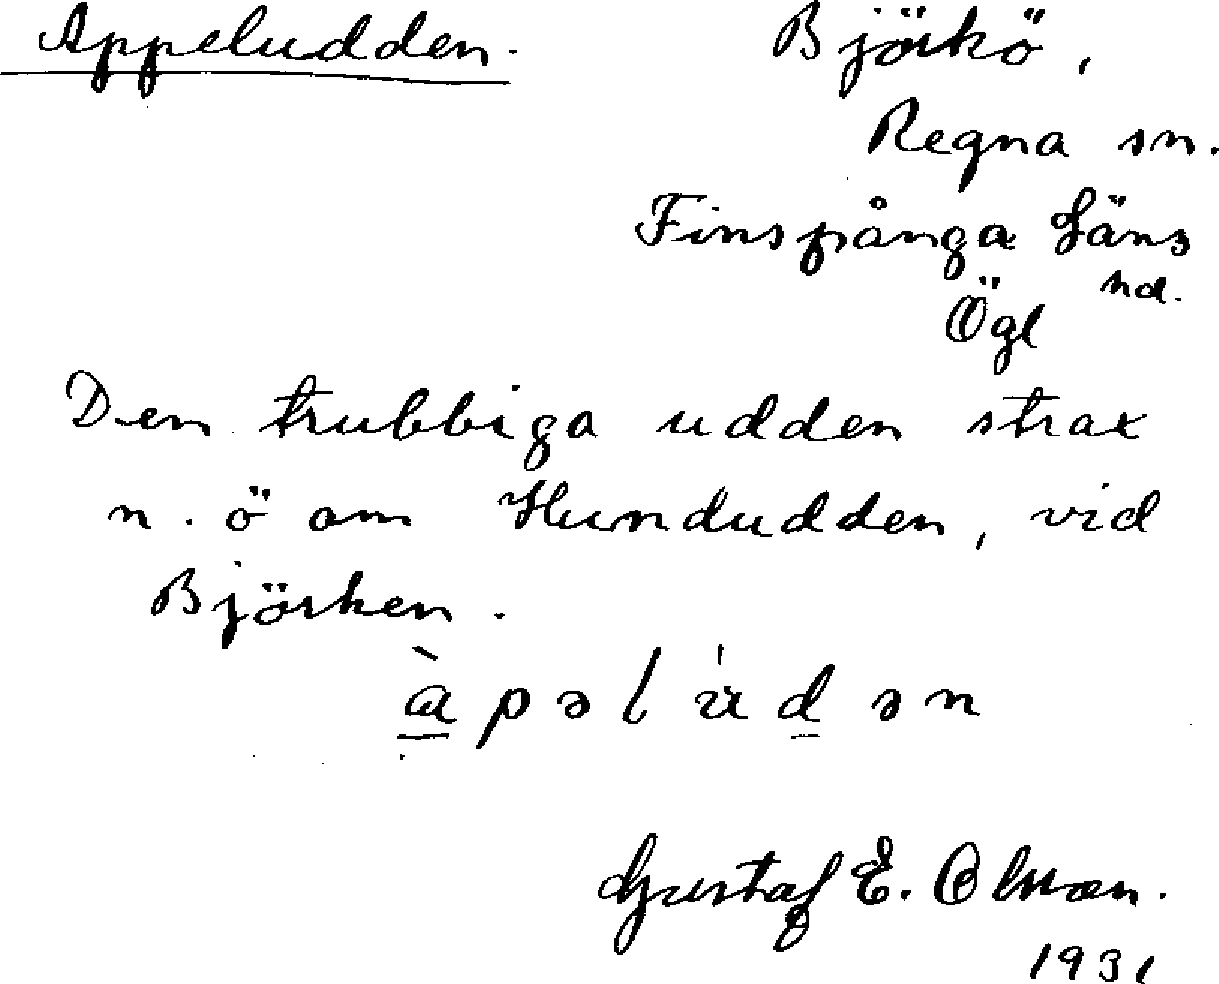 Appeludden. Björkö,
Regna sn.
Finspånga Läns
hd.
Ögl
Den trubbiga udden strax
n. ö om Hundudden, vid
Björken.
àpəlúdən
Gustaf E. Olsson.
1931